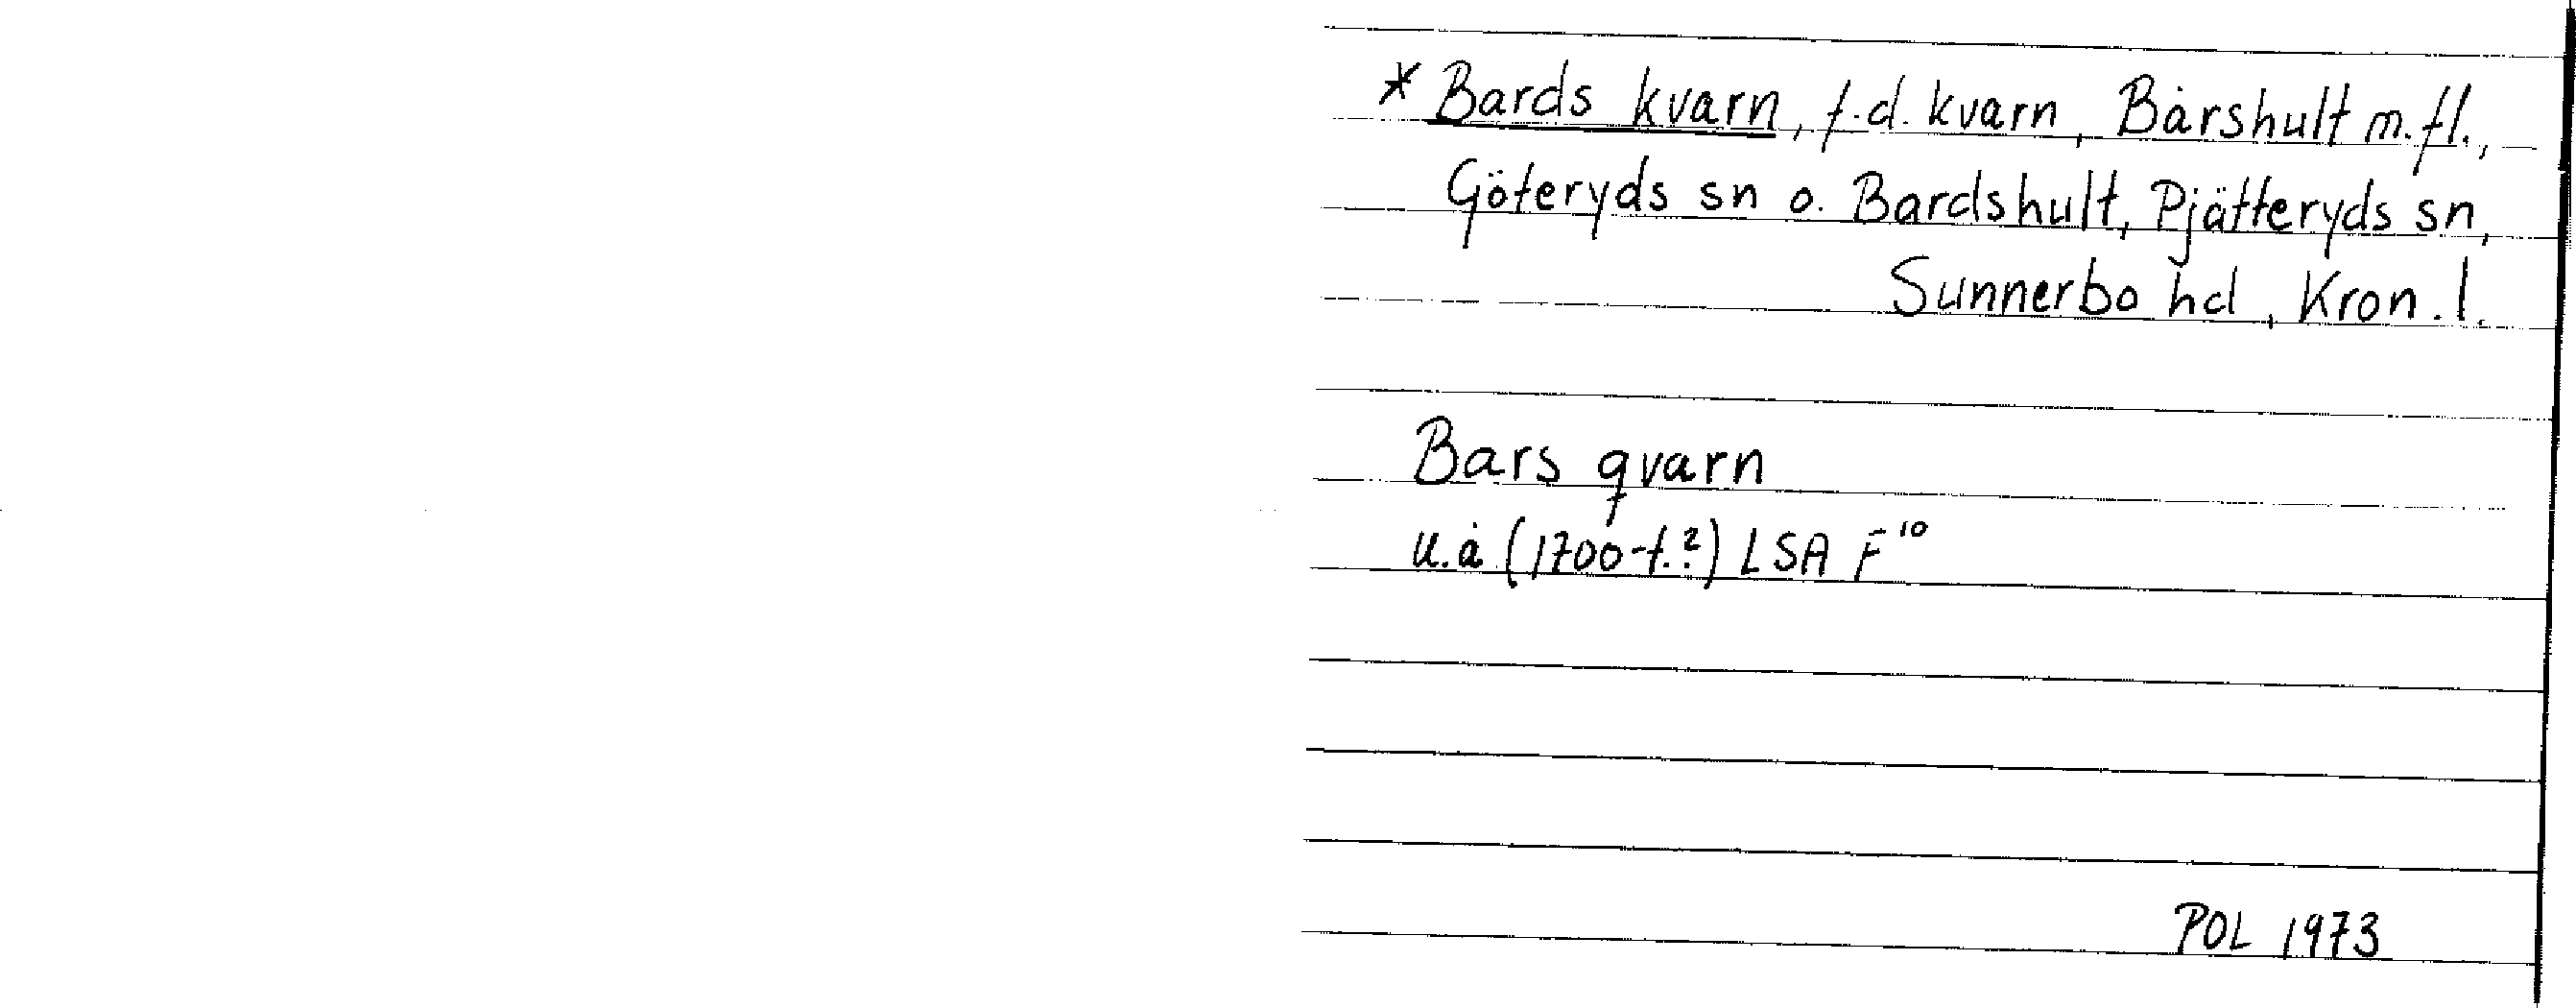 * Bards kvarn, f.d. kvarn, Bårshult m.fl.,
Göteryds sn o. Bardshult, Pjätteryds sn,
Sunnerbo hd, Kron. l.
Bars qvarn
u.å (1700-t.?) LSA F¹⁰
POL 1973